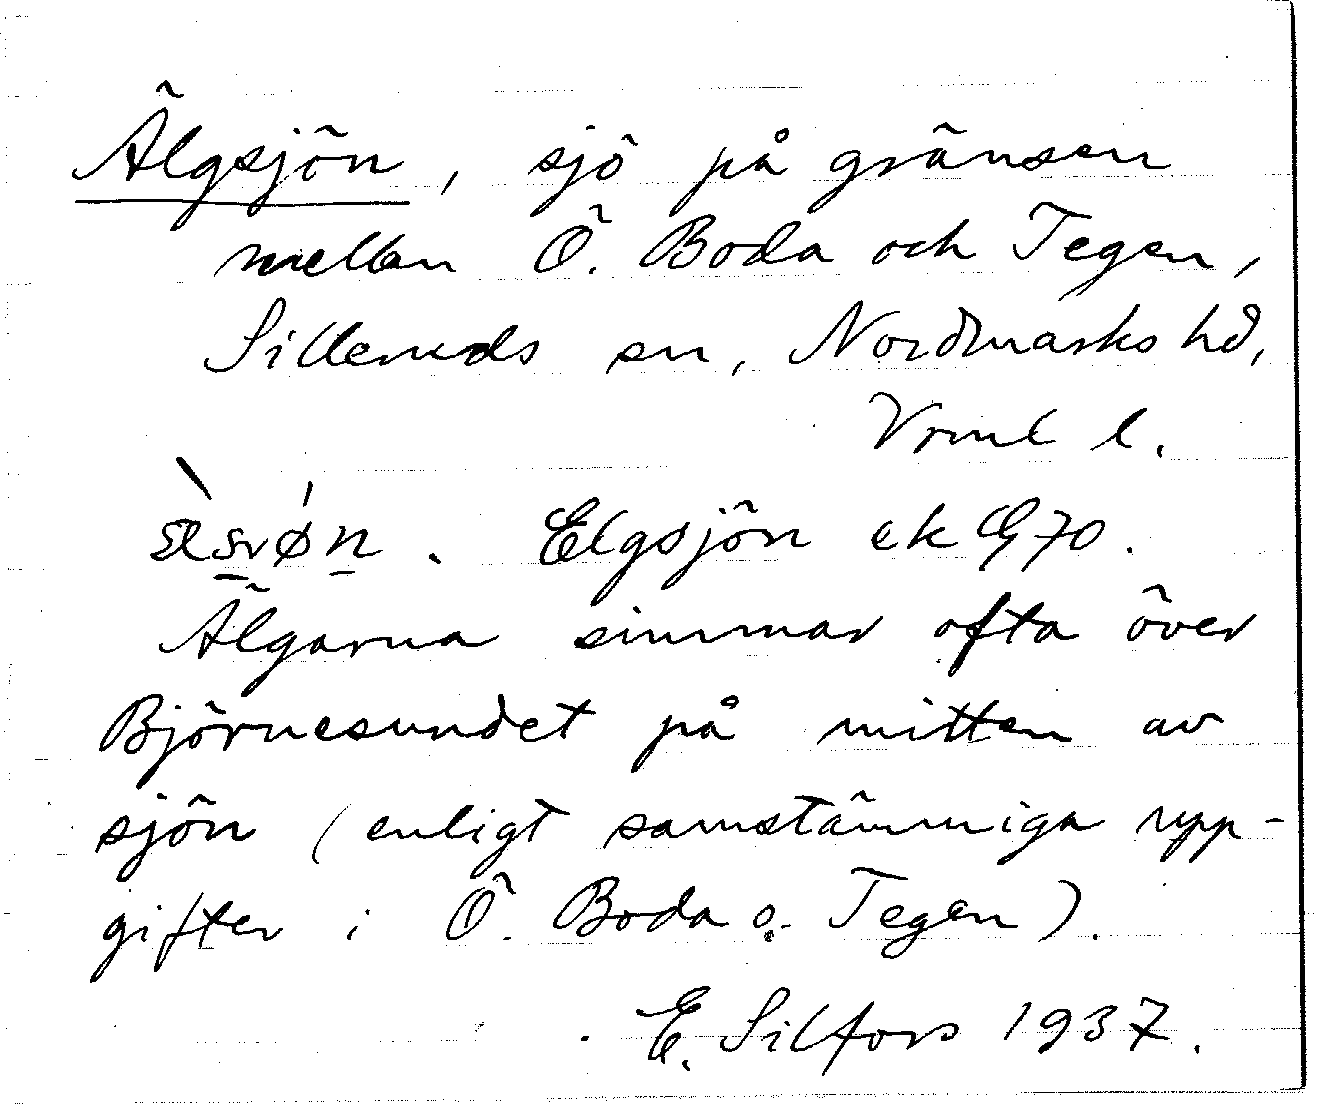 Älgsjön, sjö på gränsen
mellan Ö. Boda och Tegen,
Silleruds sn, Nordmarks hd,
Vrml l.
Elgsjön ek G 70.
Älgarna simmar ofta över
Björnesundet på mitten av
sjön (enligt samstämmiga upp-
gifter i Ö. Boda o. Tegen).
E. Silfors 1937.